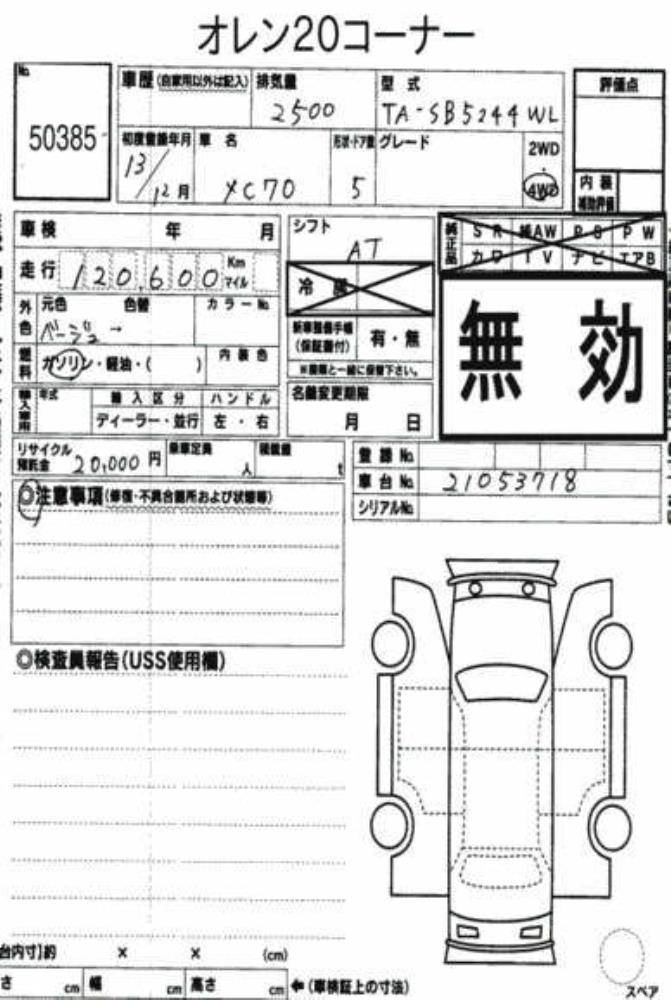 オレン20コーナー
No.
50385
車歴 (自家用以外は記入)
排気量
2500
型式
TA-SB5244WL
評価点
初度登録年月
13/12月
車名
XC70
形状・ドア数
5
グレード
2WD
・
4WD
内装
補助評価
車検 年 月
走行 120,600 Km マイル
シフト
AT
冷房
純正品
SR 純AW PS PW
カワ TV ナビ エアB
外色
元色 色替 カラーNo.
ベージュ →
燃料
ガソリン・軽油・( )
内装色
新車整備手帳
(保証書付)
有・無
※書類と一緒に保管下さい。
無効
輸入車用
年式
輸入区分
ディーラー・並行
ハンドル
左・右
名義変更期限
月 日
リサイクル
預託金 20,000 円
乗車定員
人
積載量
t
登録No.
車台No. 21053718
シリアルNo.
◎注意事項(修復・不具合箇所および状態等)
◎検査員報告(USS使用欄)
台内寸]約 × × (cm)
さ cm 幅 cm 高さ cm ←(車検証上の寸法)
スペア